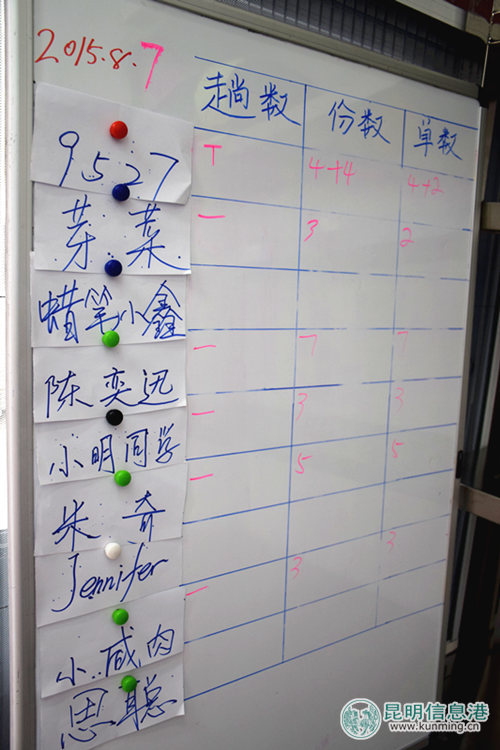 2015.8.7
趟数 份数 单数
9527 T 4+4 4+2
芽菜 一 3 2
蜡笔小鑫
陈奕迅 一 7 7
小明同学 一 3 3
米奇 一 5 5
Jennifer
小咸肉 一 3 3
思聪
昆明信息港
www.kunming.cn